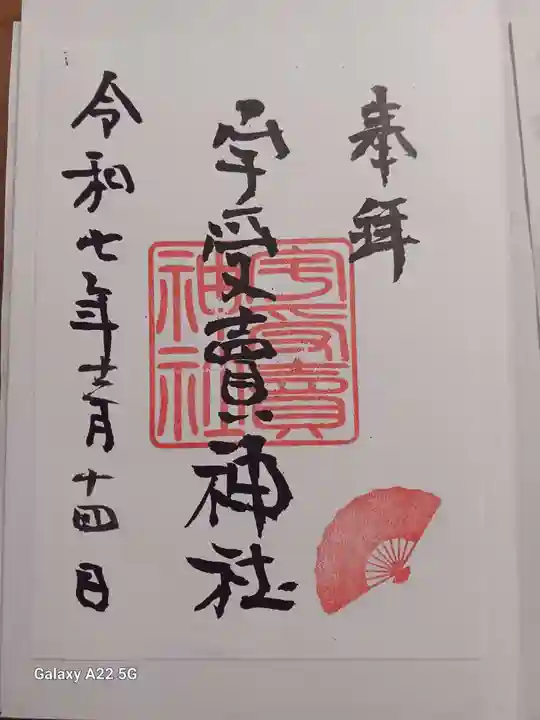 奉拝
宇受賣神社
宇受賣
神社
令和七年十二月十四日
Galaxy A22 5G